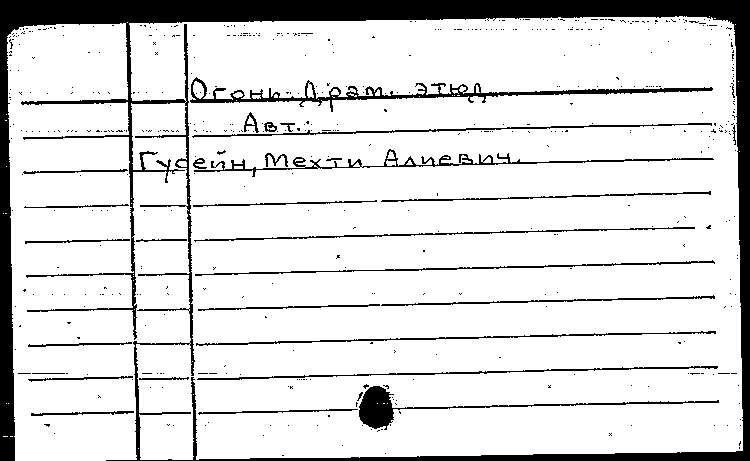 Огонь. Драм. этюд
Авт.:
Гусейн, Мехти Алиевич.